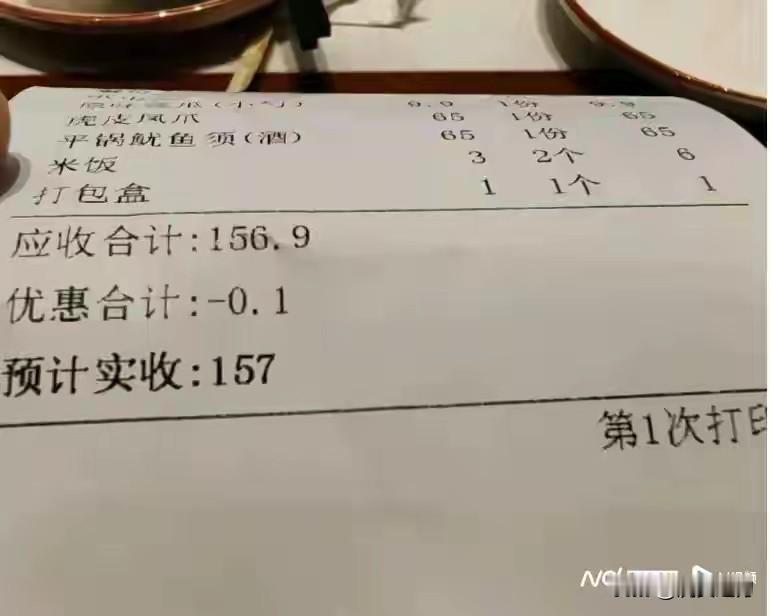 虎皮凤爪 65 1份 65
平锅鱿鱼须(酒) 65 1份 65
米饭 3 2个 6
打包盒 1 1个 1
应收合计:156.9
优惠合计:-0.1
预计实收:157
第1次打印